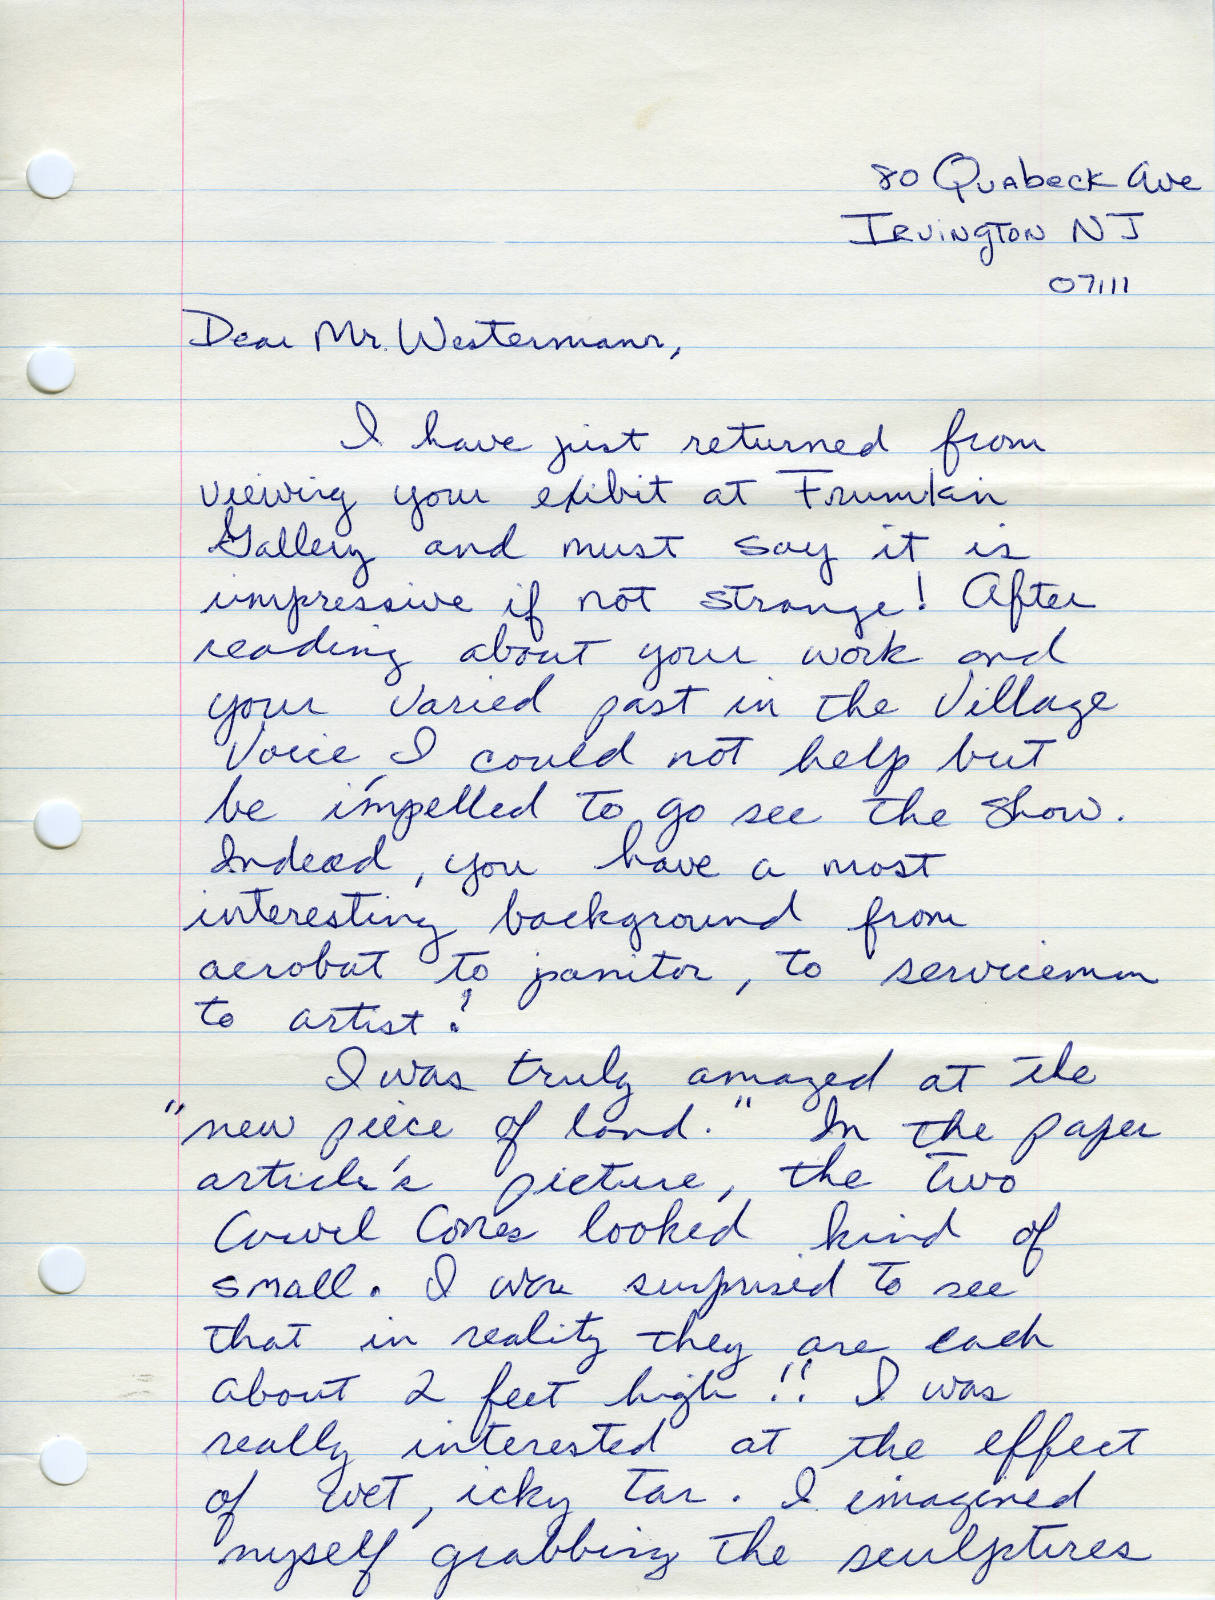 80 Quabeck Ave
Irvington NJ
07111
Dear Mr. Westermann,
I have just returned from
viewing your exibit at Frumkin
Gallery and must say it is
impressive if not strange! After
reading about your work and
your varied past in the Village
Voice, I could not help but
be impelled to go see the show.
Indeed, you have a most
interesting background from
acrobat to janitor, to serviceman
to artist!
I was truly amazed at the
"new piece of land." In the paper
article's picture, the two
Cowel Cones looked kind of
small. I was surprised to see
that in reality they are each
about 2 feet high!! I was
really interested at the effect
of wet, icky tar. I imagined
myself grabbing the sculptures